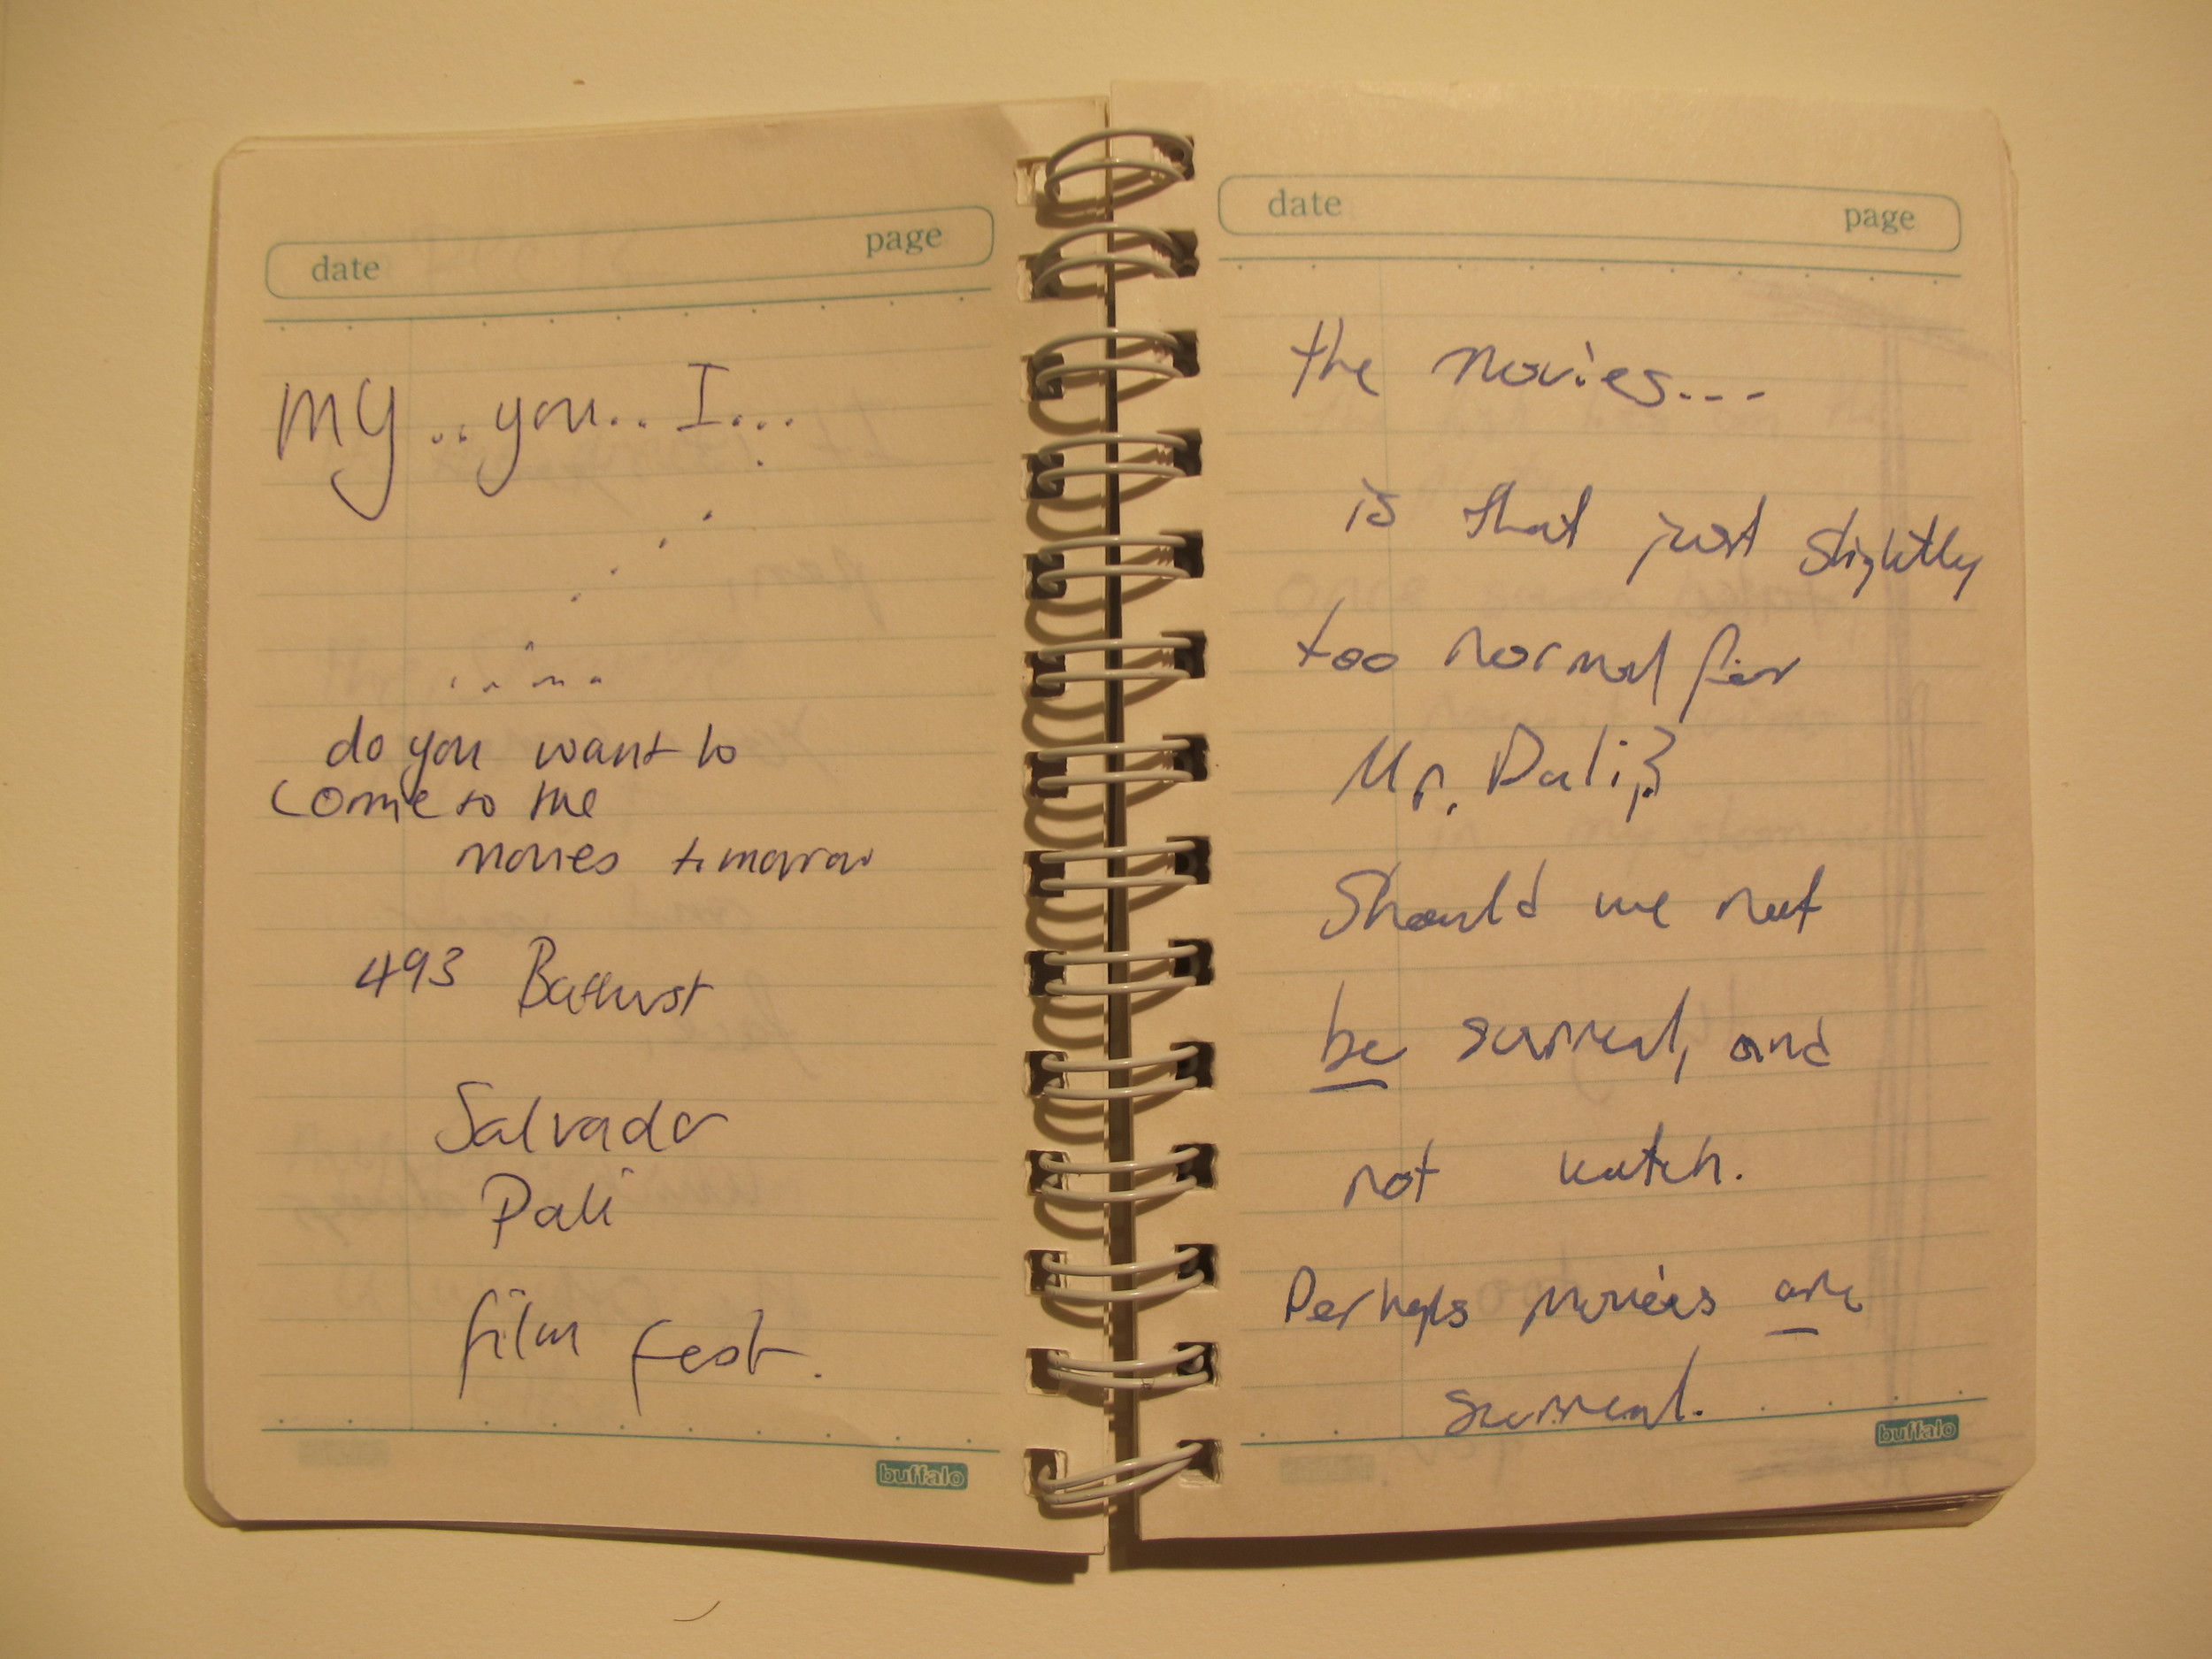 date page
my .. you.. I...
do you want to
come to the
movies timorow
493 Bathurst
Salvador
Dali
film fest.
buffalo
date page
the movies...
is that just slightly
too normal for
Mr. Dali?
Should we not
be surreal, and
not watch.
Perhaps movies are
surreal.
buffalo